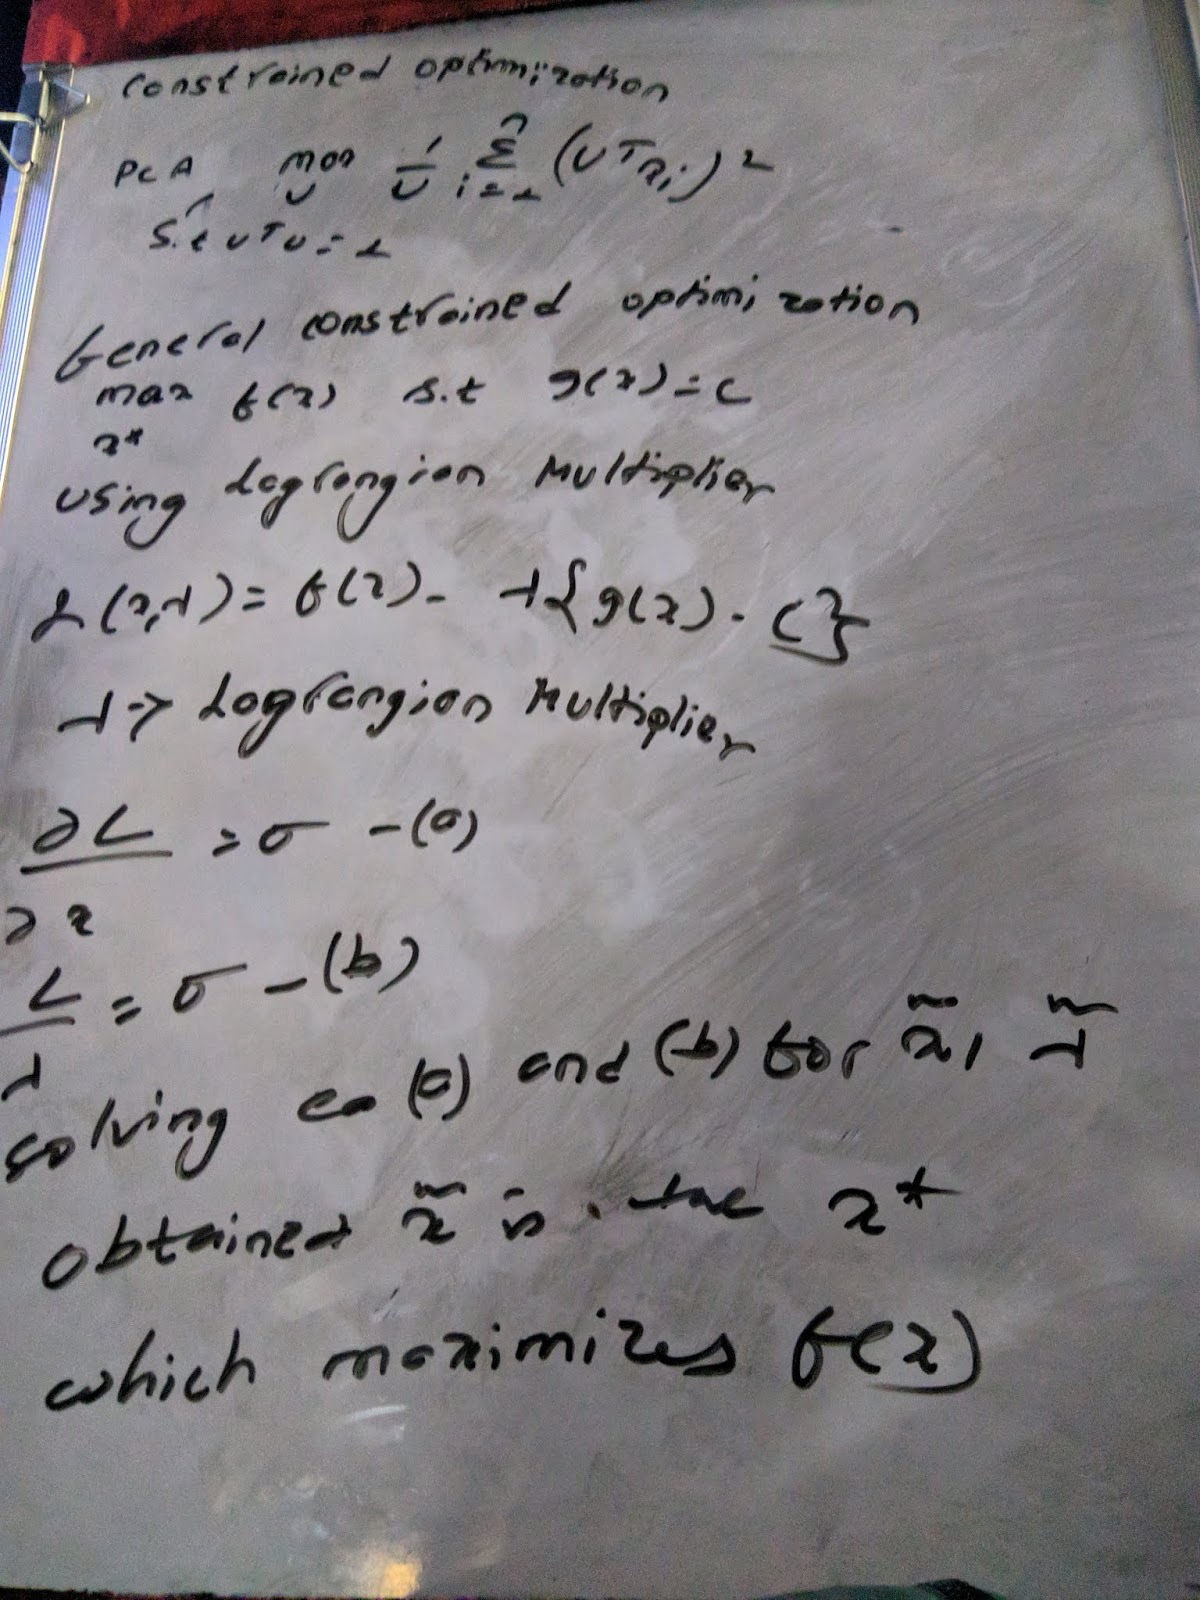 constrained optimization
PCA max 1/U n Σ i=1 (UTxi)²
U
S.t UTU = 1
General constrained optimization
max f(x) s.t g(x) = c
x*
using Lagrangian Multiplier
L(x,λ) = f(x) - λ{g(x) - c}
λ → Lagrangian Multiplier
∂L = 0 - (a)
∂x
L = 0 - (b)
λ
solving eq (a) and (b) for x̃, λ̃
obtained x̃ is the x*
which maximizes f(x)